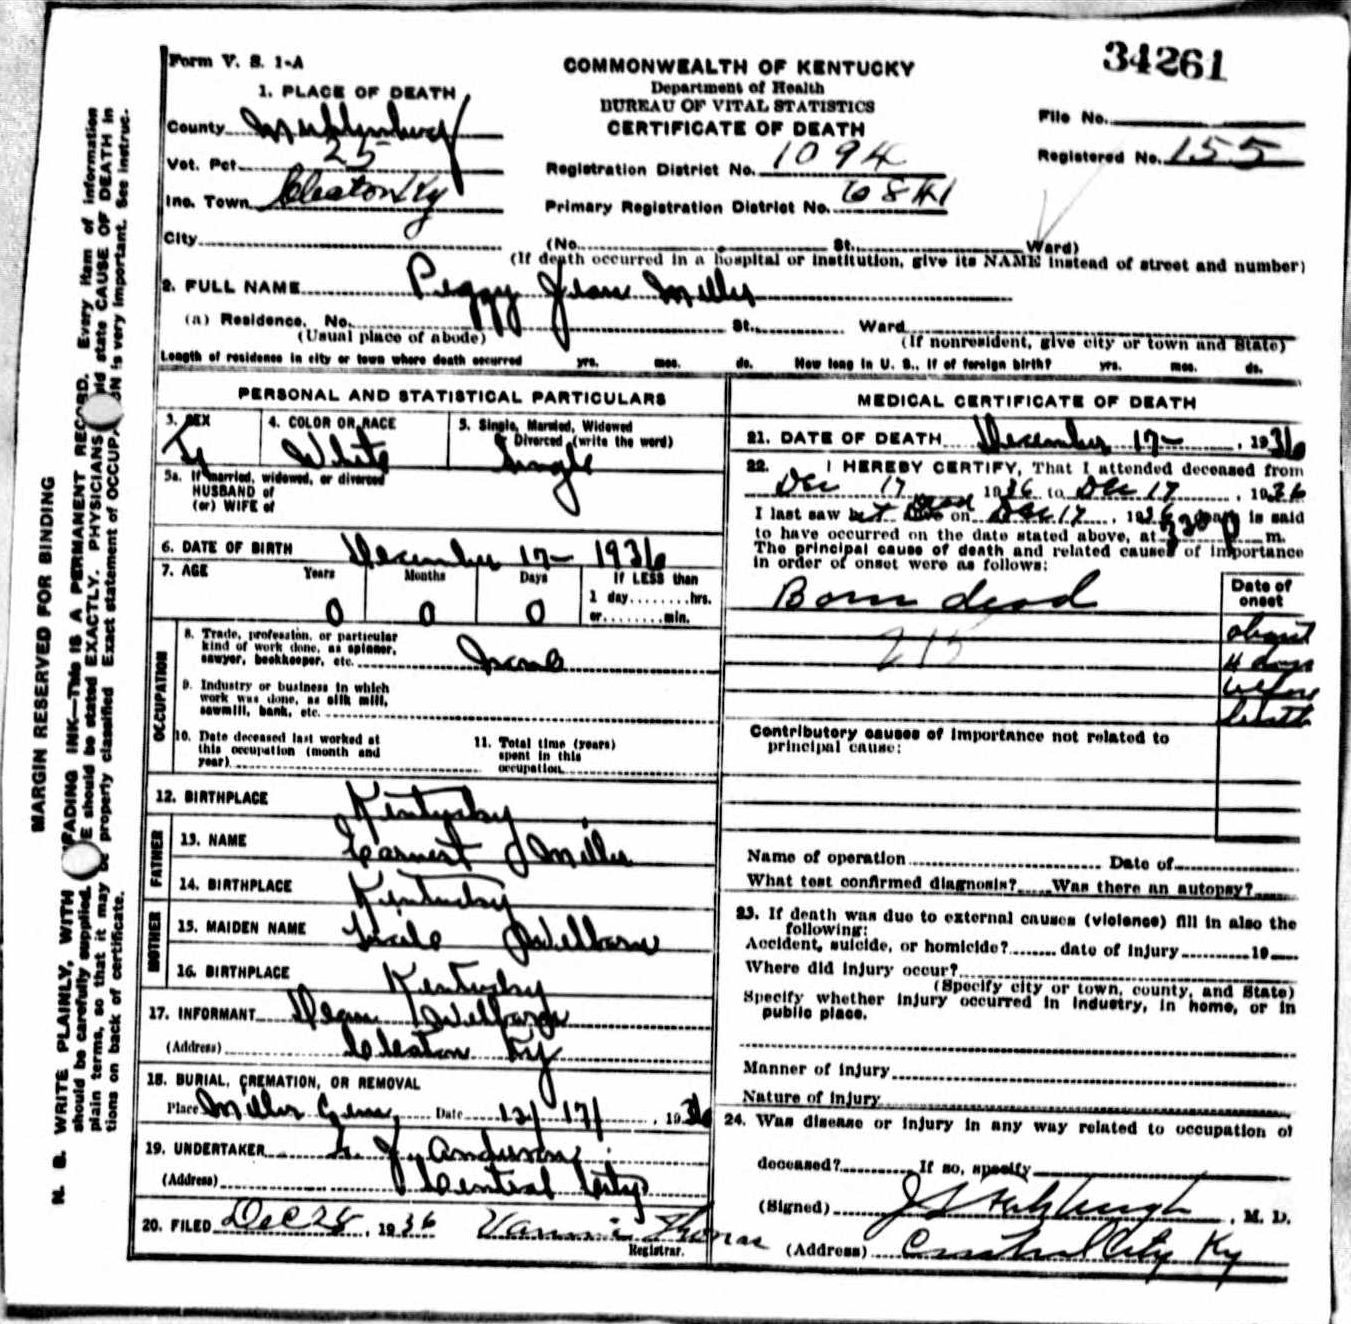 34261
Form V. S. 1-A
COMMONWEALTH OF KENTUCKY
Department of Health
BUREAU OF VITAL STATISTICS
CERTIFICATE OF DEATH
1. PLACE OF DEATH
County Muhlenburg
Vot. Pct. 25
Inc. Town Cleaton Ky
City
Registration District No. 1094
Primary Registration District No.
File No.
Registered No. 155
(No. St. Ward)
(If death occurred in a hospital or institution, give its NAME instead of street and number)
2. FULL NAME Peggy Jean Miller
(a) Residence. No. St. Ward
(Usual place of abode) (If nonresident, give city or town and State)
Length of residence in city or town where death occurred yrs. mos. ds. How long in U. S., if of foreign birth? yrs. mos. ds.
PERSONAL AND STATISTICAL PARTICULARS
3. SEX
4. COLOR OR RACE White
5. Single, Married, Widowed
Divorced (write the word)
Single
5a. If married, widowed, or divorced
HUSBAND of
(or) WIFE of
6. DATE OF BIRTH December 17- 1936
7. AGE Years Months Days If LESS than
1 day........hrs.
0 0 0 or........min.
OCCUPATION
8. Trade, profession, or particular
kind of work done, as spinner,
sawyer, bookkeeper, etc. None
9. Industry or business in which
work was done, as silk mill,
sawmill, bank, etc.
10. Date deceased last worked at
this occupation (month and
year)
11. Total time (years)
spent in this
occupation
12. BIRTHPLACE Kentucky
FATHER
13. NAME Earnest J Miller
14. BIRTHPLACE Kentucky
MOTHER
15. MAIDEN NAME Welborn
16. BIRTHPLACE Kentucky
17. INFORMANT Welborn
(Address) Cleaton Ky
18. BURIAL, CREMATION, OR REMOVAL
Place Miller Cem. Date 12/17/, 1936
19. UNDERTAKER J. Anderson
(Address) Central City
20. FILED Dec 28, 1936 Vannie Thomas
Registrar.
MEDICAL CERTIFICATE OF DEATH
21. DATE OF DEATH December 17-, 1936
22. I HEREBY CERTIFY, That I attended deceased from
Dec 17 1936 to Dec 17, 1936
I last saw alive Dead on Dec 17, 1936, death is said
to have occurred on the date stated above, at 330 P m.
The principal cause of death and related causes of importance
in order of onset were as follows:
Date of
onset
Born dead
215
about
4 days
before
birth
Contributory causes of importance not related to
principal cause:
Name of operation Date of
What test confirmed diagnosis? Was there an autopsy?
23. If death was due to external causes (violence) fill in also the
following:
Accident, suicide, or homicide? date of injury 19
Where did injury occur?
(Specify city or town, county, and State)
Specify whether injury occurred in industry, in home, or in
public place.
Manner of injury
Nature of injury
24. Was disease or injury in any way related to occupation of
deceased? If so, specify
(Signed) , M. D.
(Address) Central City Ky
MARGIN RESERVED FOR BINDING
N. B. WRITE PLAINLY, WITH FADING INK—This IS A PERMANENT RECORD. Every item of information
should be carefully supplied. E should be stated EXACTLY. PHYSICIANS ld state CAUSE OF DEATH in
plain terms, so that it may be properly classified. Exact statement of OCCUPA ON is very important. See instruc-
tions on back of certificate.